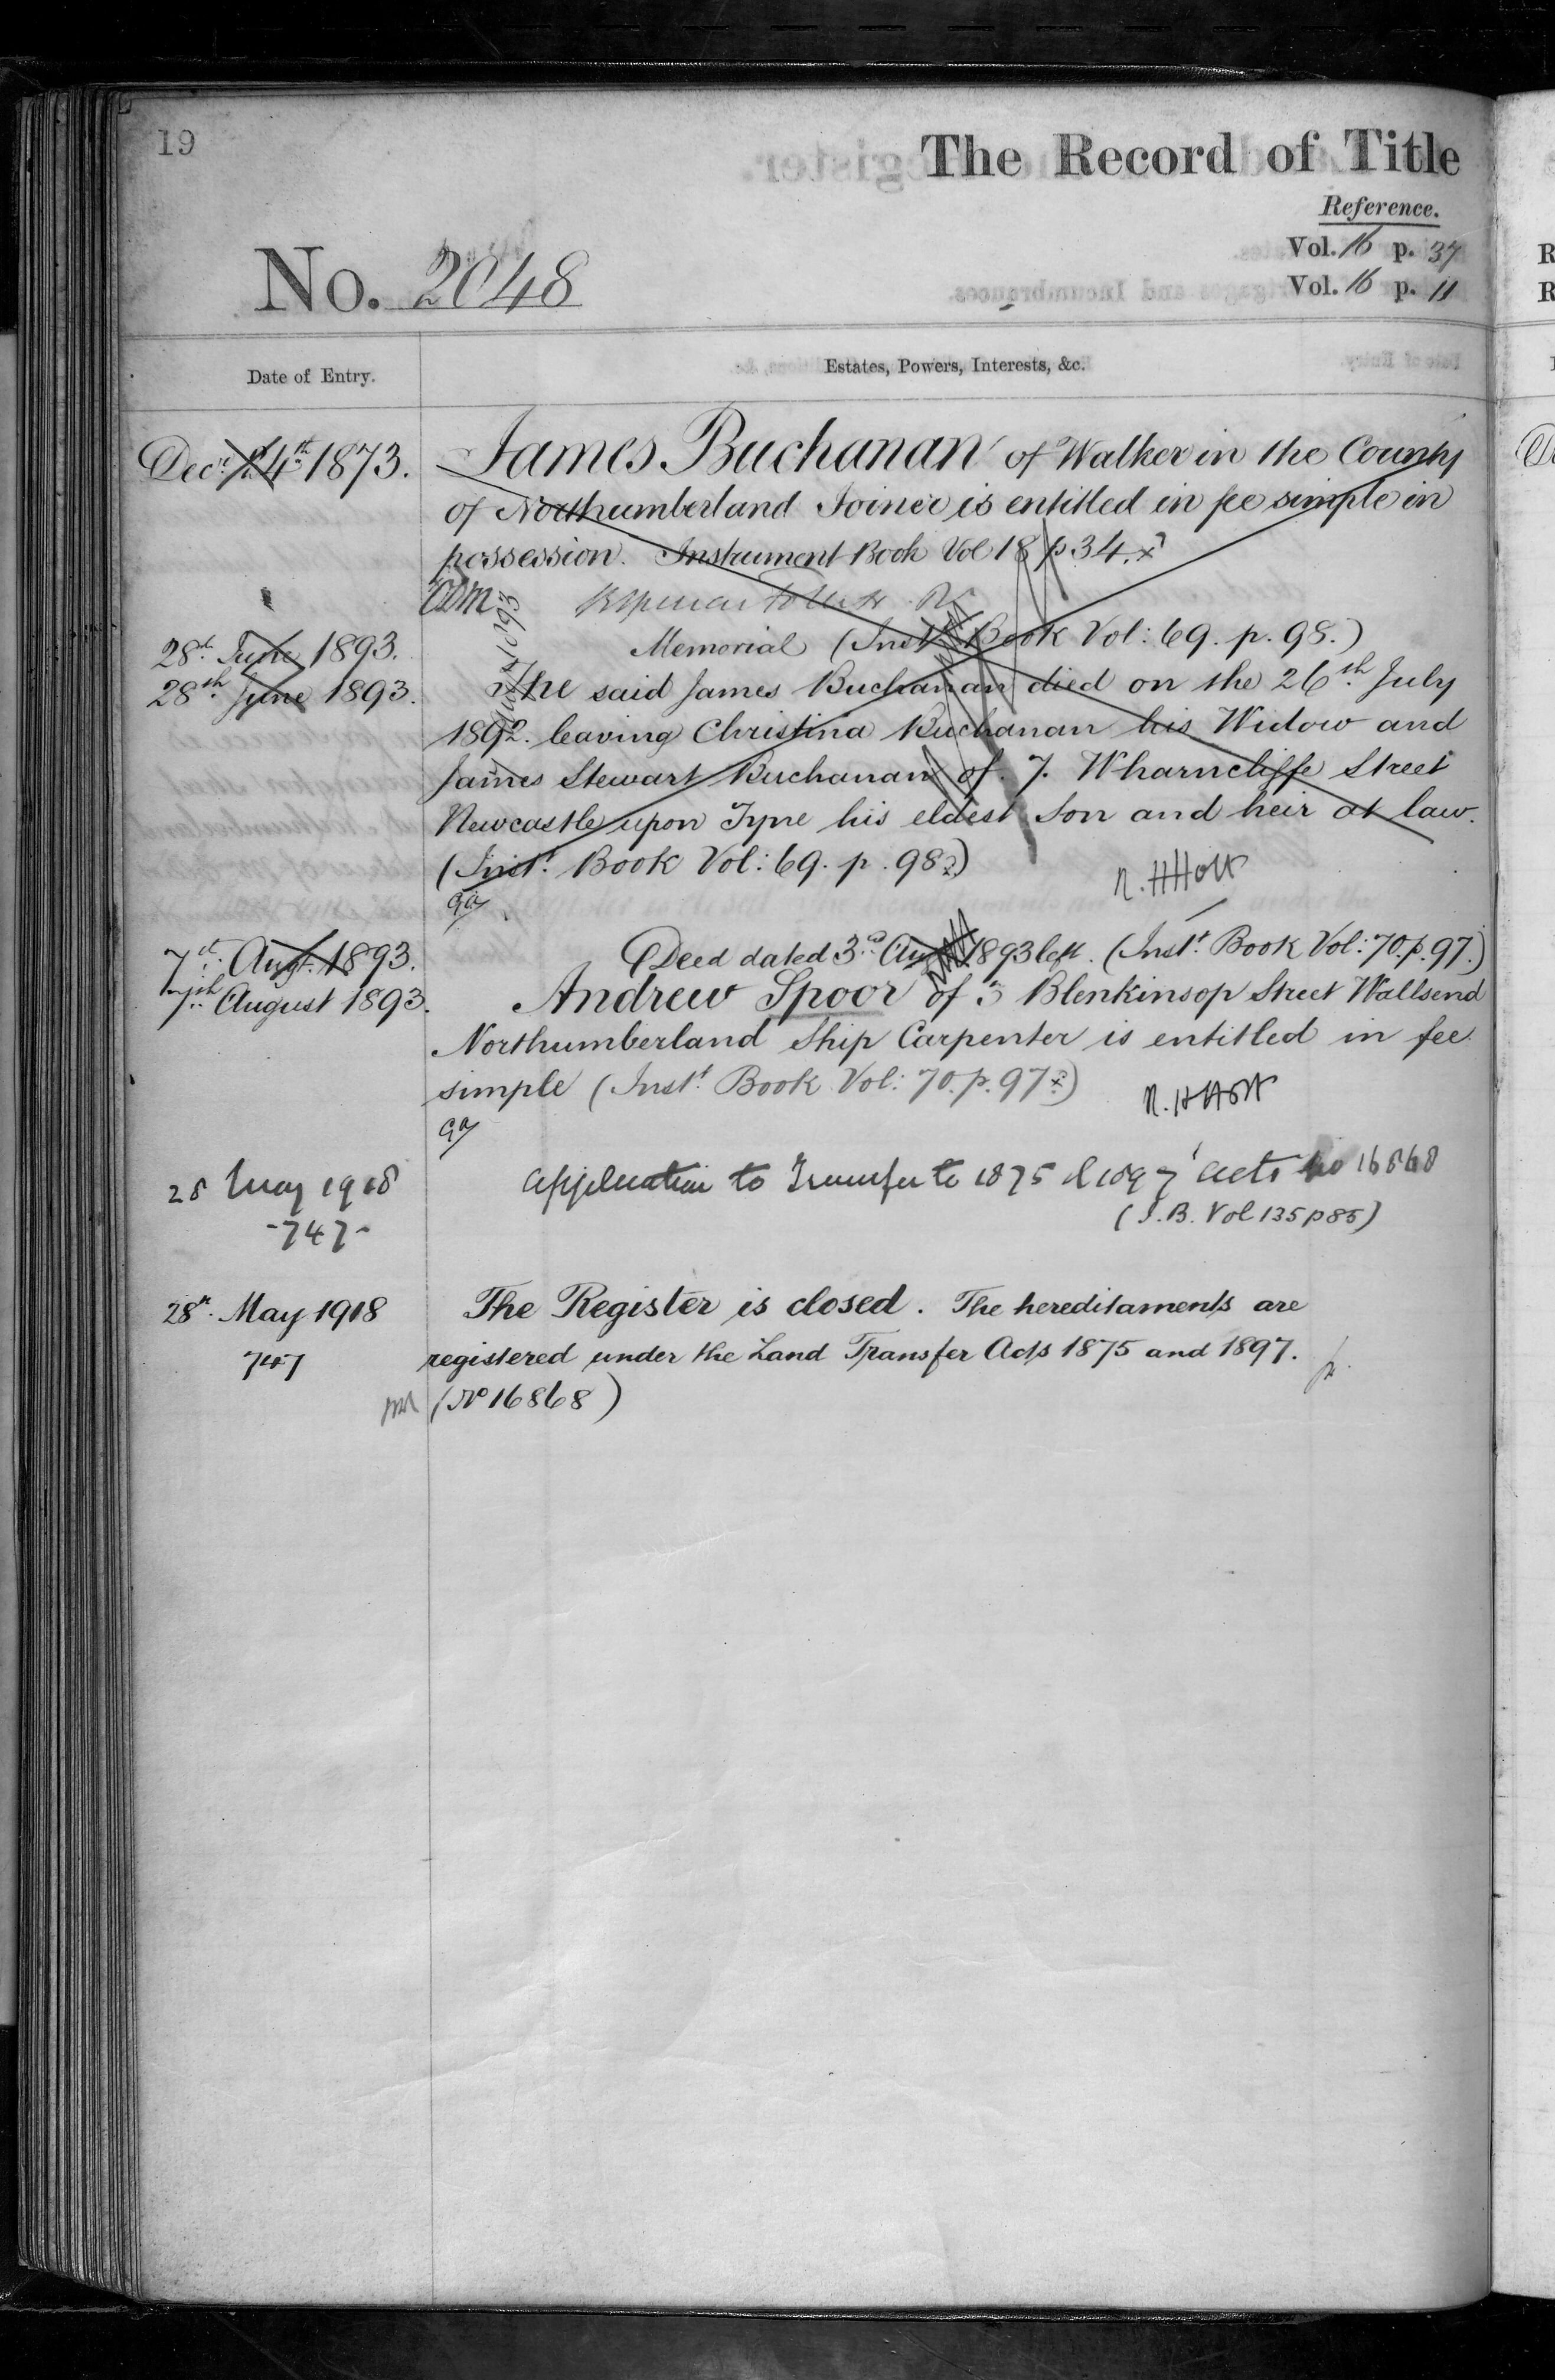 19
The Record of Title
Reference.
Vol. 16 p. 37
No. 2048
Vol. 16 p. 11
Date of Entry.
Estates, Powers, Interests, &c.
Decr. 24th 1873.
James Buchanan of Walker in the County
of Northumberland Joiner is entitled in fee simple in
possession. Instrument Book Vol 18 p 34. x
28th. June 1893.
Memorial (Inst. Book Vol: 69. p. 98.)
28th. June 1893.
The said James Buchanan died on the 26th. July
1892. leaving Christina Buchanan his Widow and
James Stewart Buchanan of. 7. Wharncliffe Street
Newcastle upon Tyne his eldest Son and heir at law.
(Inst. Book Vol: 69. p. 98 x)
N. H Holt
7th. Augt. 1893.
Deed dated 3rd Aug 1893 left. (Instt. Book Vol: 70. p. 97.)
7th. August 1893.
Andrew Spoor of 3 Blenkinsop Street Wallsend
Northumberland Ship Carpenter is entitled in fee
simple (Instt. Book Vol: 70. p. 97 x)
N. H Holt
28 May 1918
Application to Transfer to 1875 & 1897 Acts No 16868
-747-
(I.B. Vol 135 p 85)
28th. May 1918
The Register is closed. The hereditaments are
747
registered under the Land Transfer Acts 1875 and 1897.
(No 16868)